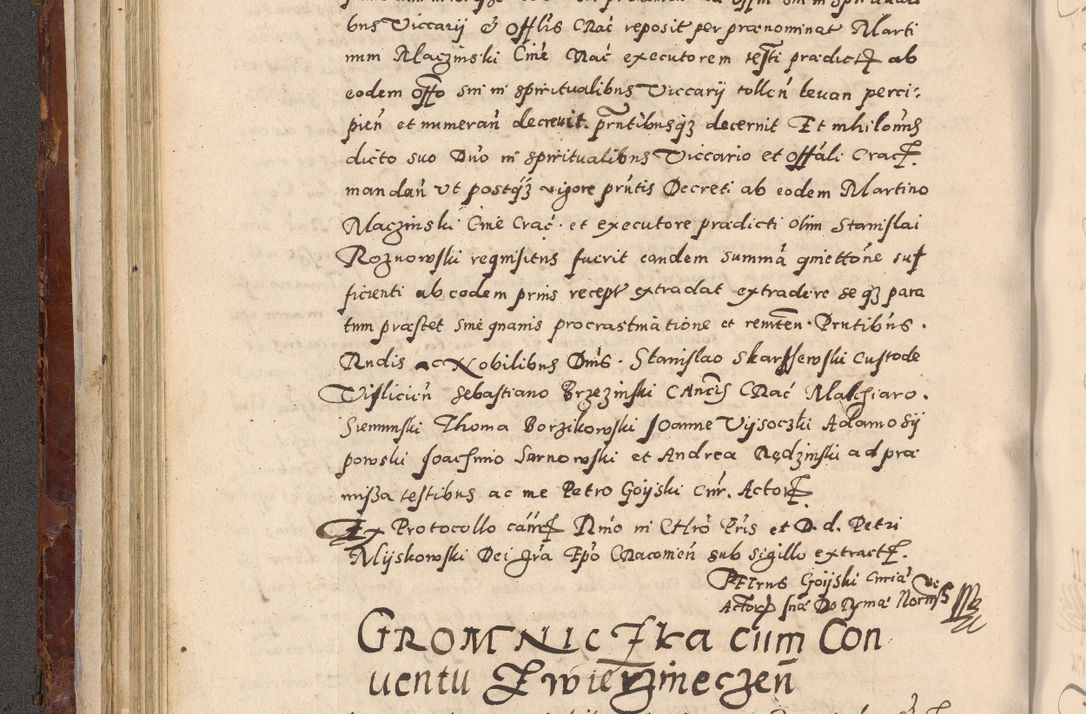 bus Viccarij & Offlis Crac̄ reposit per prænominat Marti
num Maczinski Cinē Crac̄ executorem testi prædict ab
eodem offo sui in spiritualibus Viccarij tollen̄ levan perci:
pien̄ et numeran̄ decrevit. prn̄tibusq3 decernit Et nihilomis
dicto suo Dn̄o in spiritualibus Viccario et Offāli Crac.
mandan̄ ut postq3 vigore prn̄tis Decreti ab eodem Martino
Maczinski Cinē Crac̄ et executore prædicti olim Stanislai
Roznowski requisitus fuerit eandem summā quiettōne suf
ficienti ab eodem prius recept extradat extradere se q3 para
tum præstet sine quavis procrastinatione et remten. Prntibus.
Rndis ac Nobilibus Dnis. Stanislao Skarssewski Custode
Vislicien̄ Sebastiano Brzezinski Cancis Crac̄ Malchiaro.
Sieminski Thoma Borzikowski Joanne Vijsoczki Adamo Sij
powski Joachmo Sarnowski et Andrea Nędzinski ad præ
missa testibus ac me Petro Goijski Cur. Actor
Ex Protocollo can̄c Rmo in Chro Pris et D. d. Petri
Mijskowski Dei grā Epō Cracovien̄ sub sigillo extract.
Petrus Goijski Curiæ
Actor
GROMNICZka cum Con
ventu Zwierzinieczen̄